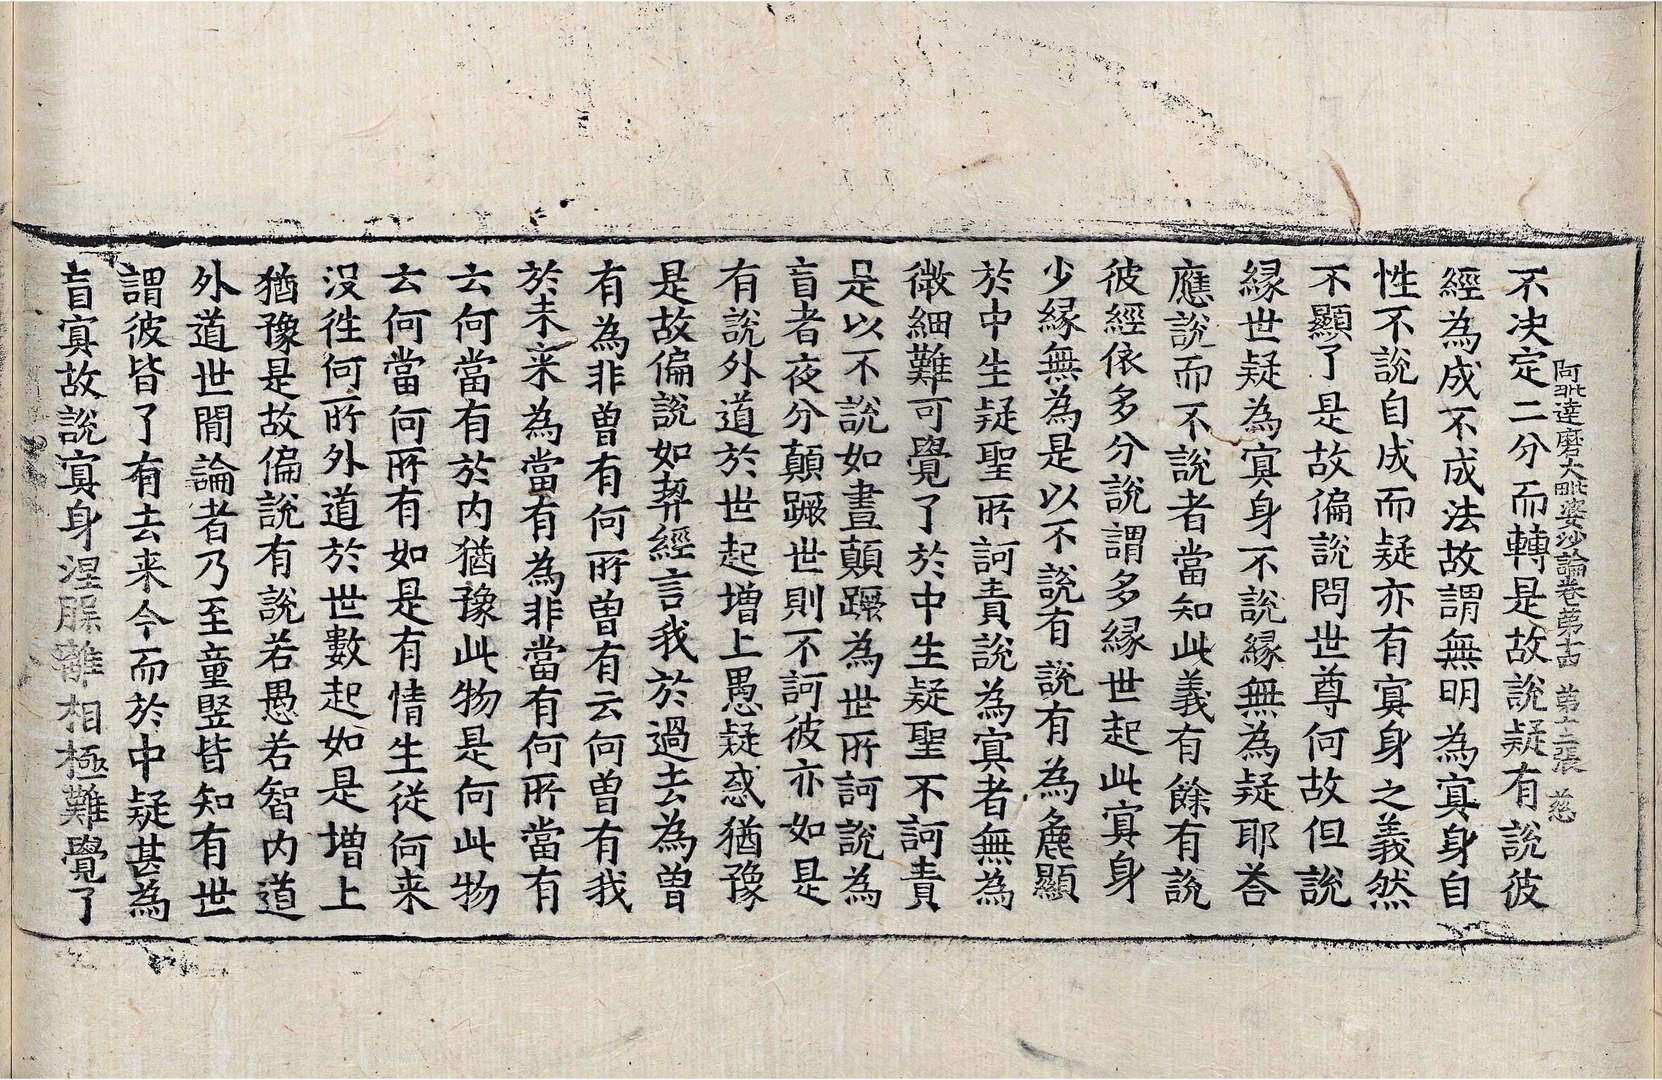 阿毗達磨大毗婆沙論卷第十四 第十二張 慈
不決定二分而轉是故說疑有說彼
經為成不成法故謂無明為寘身自
性不說自成而疑亦有寘身之義然
不顯了是故偏說問世尊何故但說
縁世疑為寘身不說縁無為疑耶荅
應說而不說者當知此義有餘有說
彼經依多分說謂多縁世起此寘身
少縁無為是以不說有說有為麁顯
於中生疑聖所訶責說為寘者無為
微細難可覺了於中生疑聖不訶責
是以不說如晝顛蹶為世所訶說為
盲者夜分顛蹶世則不訶彼亦如是
有說外道於世起增上愚疑惑猶豫
是故偏說如契經言我於過去為曾
有為非曾有何所曾有云何曾有我
於未來為當有為非當有何所當有
云何當有於內猶豫此物是何此物
云何當何所有如是有情生從何来
沒徃何所外道於世數起如是增上
猶豫是故偏說有說若愚若智內道
外道世間論者乃至童竪皆知有世
謂彼皆了有去来今而於中疑甚為
盲寘故說寘身涅離相極難覺了